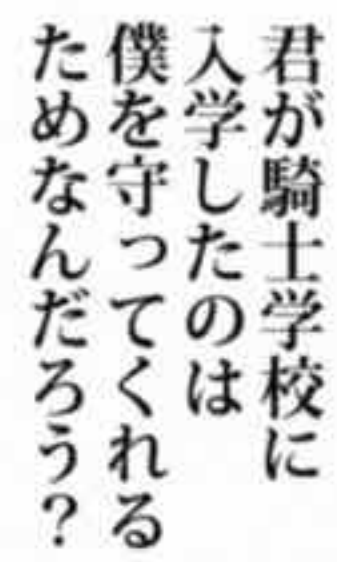 君が騎士学校に
入学したのは
僕を守ってくれる
ためなんだろう？